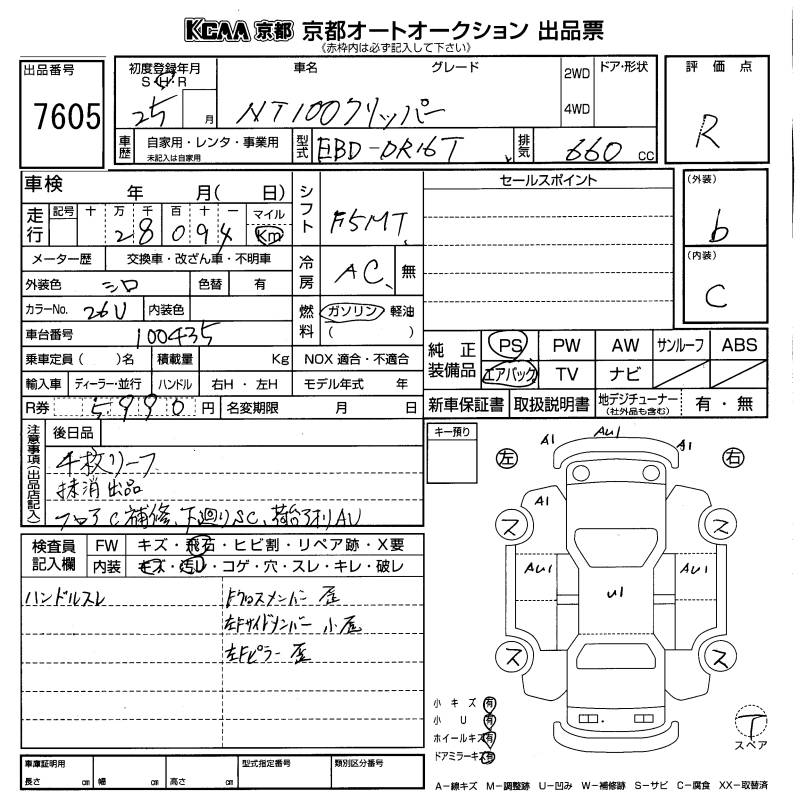 KCAA 京都 京都オートオークション 出品票
《赤枠内は必ず記入して下さい》
出品番号
7605
初度登録年月
S H R
25 月
車名 グレード
NT100クリッパー
2WD
4WD
ドア・形状
評価点
R
車歴
自家用・レンタ・事業用
未記入は自家用
型式
EBD-DR16T
排気
660 cc
車検 年 月( 日)
走行
記号 十 万 千 百 十 一 マイル
2 8 0 9 4 Km
シフト
F5MT
セールスポイント
(外装)
b
(内装)
C
メーター歴 交換車・改ざん車・不明車
冷房
AC 無
外装色 シロ 色替 有
カラーNo. 26U 内装色
燃料
ガソリン 軽油
( )
車台番号 100435
乗車定員( )名 積載量 Kg NOX適合・不適合
輸入車 ディーラー・並行 ハンドル 右H・左H モデル年式 年
R券 5990円 名変期限 月 日
純正装備品
PS PW AW サンルーフ ABS
エアバック TV ナビ
新車保証書 取扱説明書 地デジチューナー (社外品も含む) 有・無
注意事項(出品店記入)
後日品
4枚リーフ
抹消出品
フロアC補修、下廻りSC、荷台アオリAU
キー預り
左
右
A1 AU1 A1
A1
ス ス
AU1 U1 AU1
ス ス
検査員記入欄
FW キズ・飛石・ヒビ割・リペア跡・X要
内装 キズ・汚レ・コゲ・穴・スレ・キレ・破レ
ハンドルスレ
Fクロスメンバー歪
左Fサイドメンバー小歪
左Fピラー歪
小キズ 有
小U 有
ホイールキズ 有
ドアミラーキズ 有
T
スペア
車庫証明用
長さ cm 幅 cm 高さ cm
型式指定番号
類別区分番号
A−線キズ M−調整跡 U−凹み W−補修跡 S−サビ C−腐食 XX−取替済